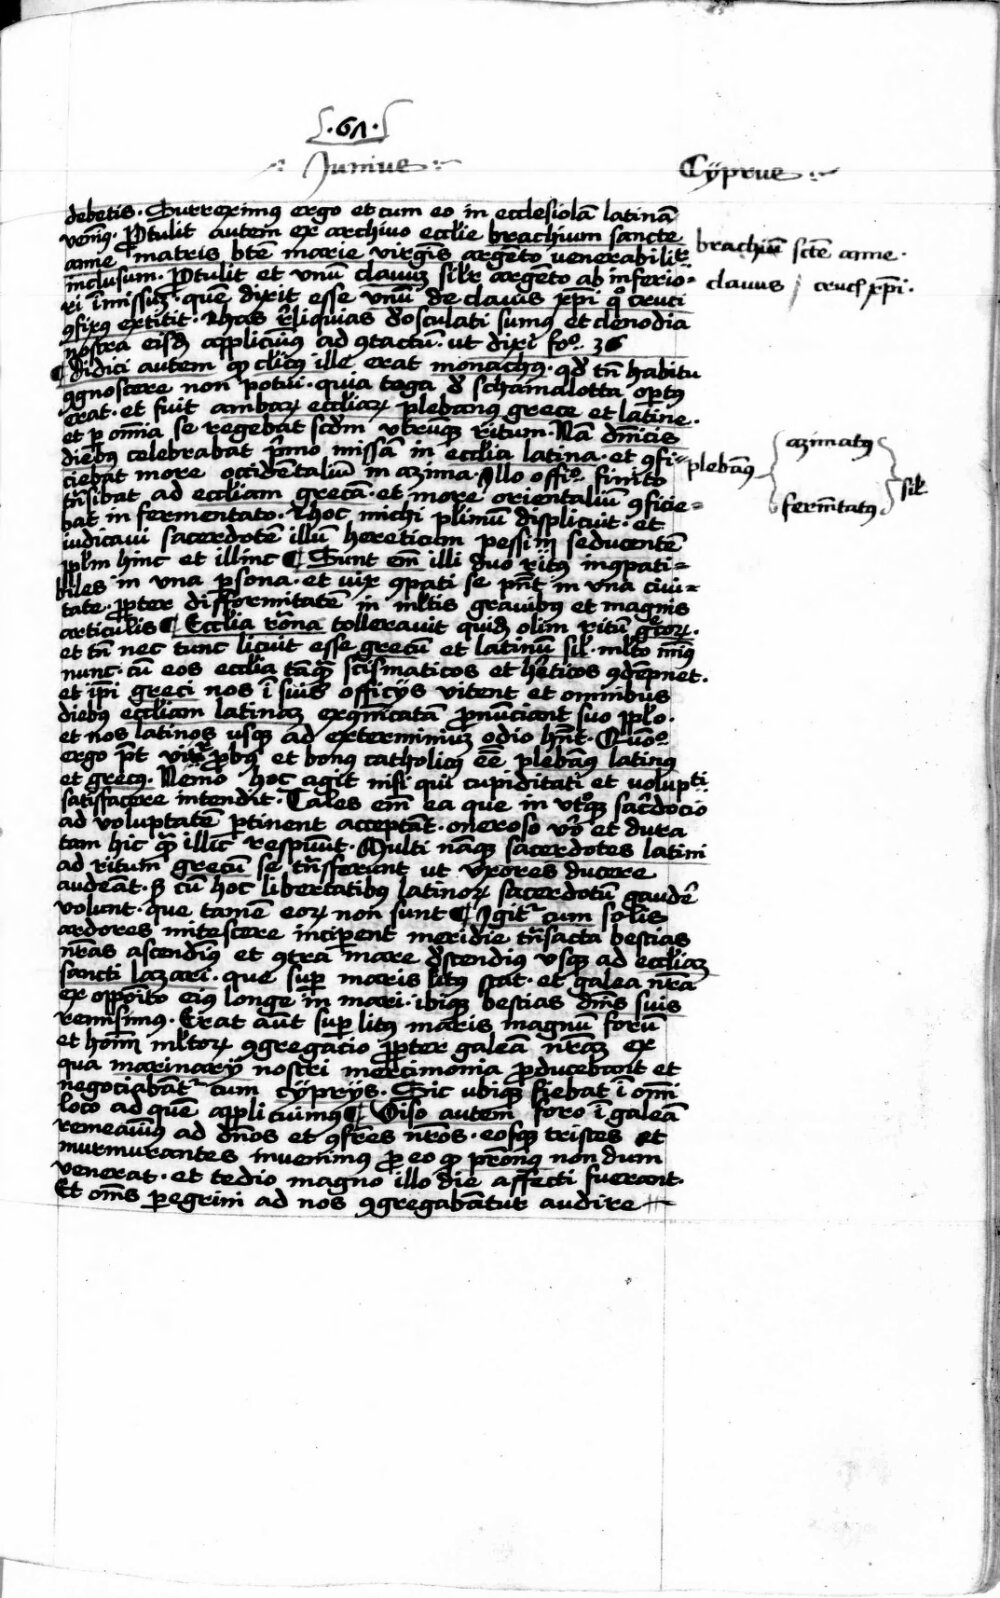 ·61·
Junius
Cÿprus
debetis · Surreximus ergo et cum eo in ecclesiolā latinā
venimꝰ · Ꝓtulit autem ex archivo ecclie brachium sancte
anne matris bt̄e marie virgīs argēto venerabilitr̄
inclusum · Ꝓtulit et unū clavuꝫ silr̄ argēto ab inferio=
ri īmissuꝫ · quē dixit esse unū de clavis xp̄i qͦ cruci
ꝯfixꝰ extitit · Has r̄liquias d̄osculati sumꝰ et clenodia
nostra eisd̄ applicuimꝰ ad ꝯtactū · ut dixi foͦ · 36
¶ Didici autem qͥ clic̄ꝰ ille erat monachꝰ · qd̄ tn̄ habitu
ꝯgnoscere non potui · quia toga d̄ schamalotta optꝰ
erat · et fuit ambaꝝ eccliaꝝ plebanꝰ grece et latine ·
et ꝑ om̄ia se regebat scd̄m utrūqꝫ ritum · Nā dn̄icis
diebꝰ celebrabat p̄mo missā in ecclia latina · et ꝯfi=
ciebat more occidentaliū in azima · Illo offiͦ · finito
tn̄sibat ad eccliam grecā · et more orientaliū ꝯficie=
bat in fermentato · Hoc michi plimū displicuit · et
iudicavi sacerdotē illū hereticum pessimū seducentē
pplm hinc et illinc ¶ Sunt em̄ illi duo ritꝰ inꝯpati=
biles in una ꝑsona · et vix ꝯpati se pn̄t in una civi=
tate · ꝓpter difformitatē in ml̄tis gravibꝰ et magnis
articulis ¶ Ecclia r̄ona tolleravit quid̄ olim ritū grecoꝝ ·
et tn̄ nec tunc licuit esse grecū et latinū sil · ml̄to minꝰ
nunc · cū eos ecclia tāqꝫ scismaticos et h̄eticos ꝯdēpnet ·
et ip̄i greci nos ī suis officÿs vitent et omnibus
diebus eccliam latinaꝫ exꝯmunicatā ꝓnūciant suo pplo ·
et nos latinos usqꝫ ad exterminiuꝫ odio hn̄t · Quōͦ
ergo pōt vir ꝓbꝰ et bonꝰ catholicꝰ eē plebanꝰ latinꝰ
et grecꝰ · Nemo hoc agit nisi qui cupiditati et volupti
satisfacere intendit · Tales em̄ ea que in utͦqꝫ sac̄docio
ad voluptatē ꝑtinent acceptāt · oneroso v̄o et dura
tam hic qꝫ illic respuūt · Multi nāqꝫ sacerdotes latini
ad ritum grecū se tn̄sferunt ut uxores ducere
audeāt · sꝫ cū hoc libertatibꝰ latinoꝝ sacerdotū gaudē
volunt · que tamē eoꝝ non sunt ¶ Igitr̄ cum solis
ardores mitescere inciperent meridie tn̄sacta bestias
nr̄as ascendimꝰ et ꝯtra mare d̄scendimꝰ usqꝫ ad eccliaꝫ
sancti lazari · que sup̄ maris litꝰ stat · et galea nr̄a
ex oppoīto eiꝰ longe in mari · ibiqꝫ bestias dn̄is suis
remisimus · Erat aūt sup̄ litꝰ maris magnū forū
et hoīm ml̄toꝝ ꝯgregatio ꝓpter galeā nr̄aꝫ ex
qua marinarÿ nostri mercimonia ꝓducebant et
negociabāt cum cÿprÿs · Sic ubiqꝫ fiebat ī om̄i
loco ad quē applicuimꝰ ¶ Viso autem foro ī galeā
remeavimꝰ ad dn̄os et ꝯfr̄es nr̄os · eosqꝫ tristes et
murmurantes invenimus ꝓ eo qͥ pr̄onꝰ non dum
venerat · et tedio magno illo die affecti fuerant ·
Et oms ꝑegrini ad nos ꝯgregabātur audire
brachiū scte anne ·
clavus / crucis xp̄i ·
plebanꝰ
azimatꝰ
fermētatꝰ
sil